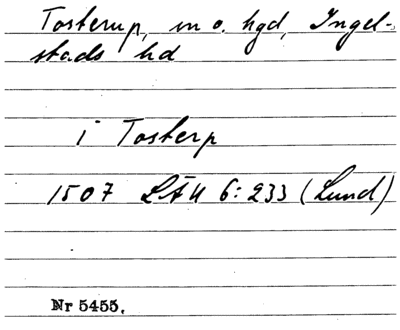 Tosterup, sn o. hgd, Ingel-
stads hd
i Tosterp
1507 LÄU 6:233 (Lund)
Nr 5455.